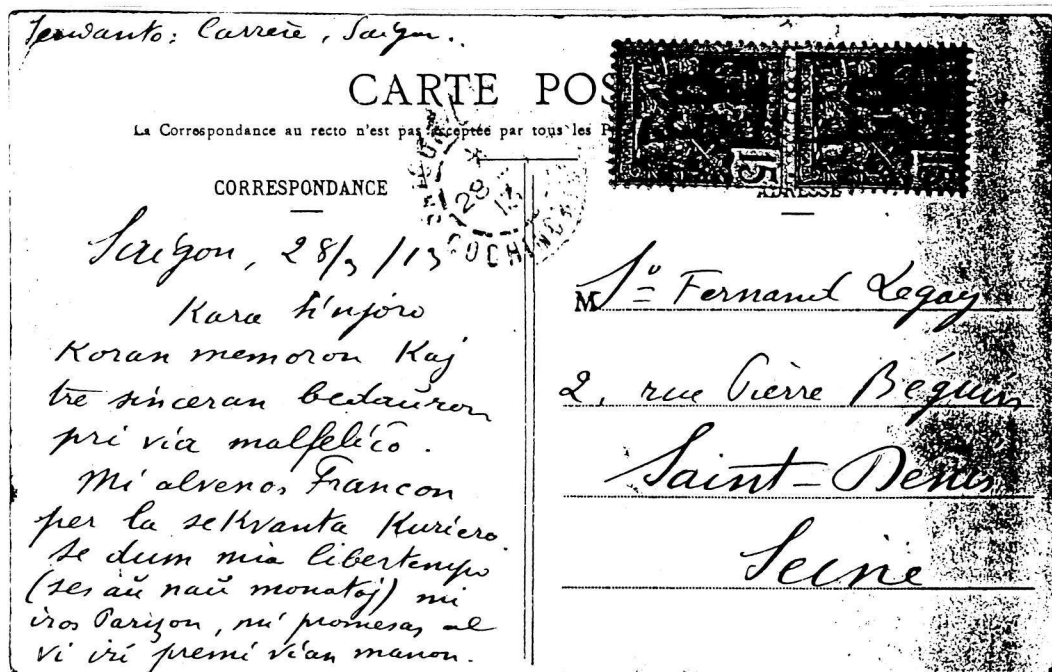 Sendanto: Carrère, Saigon.
CARTE POS
La Correspondance au recto n'est pas acceptée par tous les P
CORRESPONDANCE
ADRESSE
15
SAIGON
28
13
COCHINCHINE
Saigon, 28/3/13
Kara Sinjoro
Koran memoron Kaj
tre sinceran bedaŭron
pri via malfeliĉo.
Mi alvenos Francon
per la seKvanta Kuriero.
Se dum mia libertempo
(ses aŭ naŭ monatoj) mi
iros Parizon, mi promesas al
vi iri premi vian manon.
M Sº Fernand Legay
2, rue Pierre Béguin
Saint-Denis
Seine